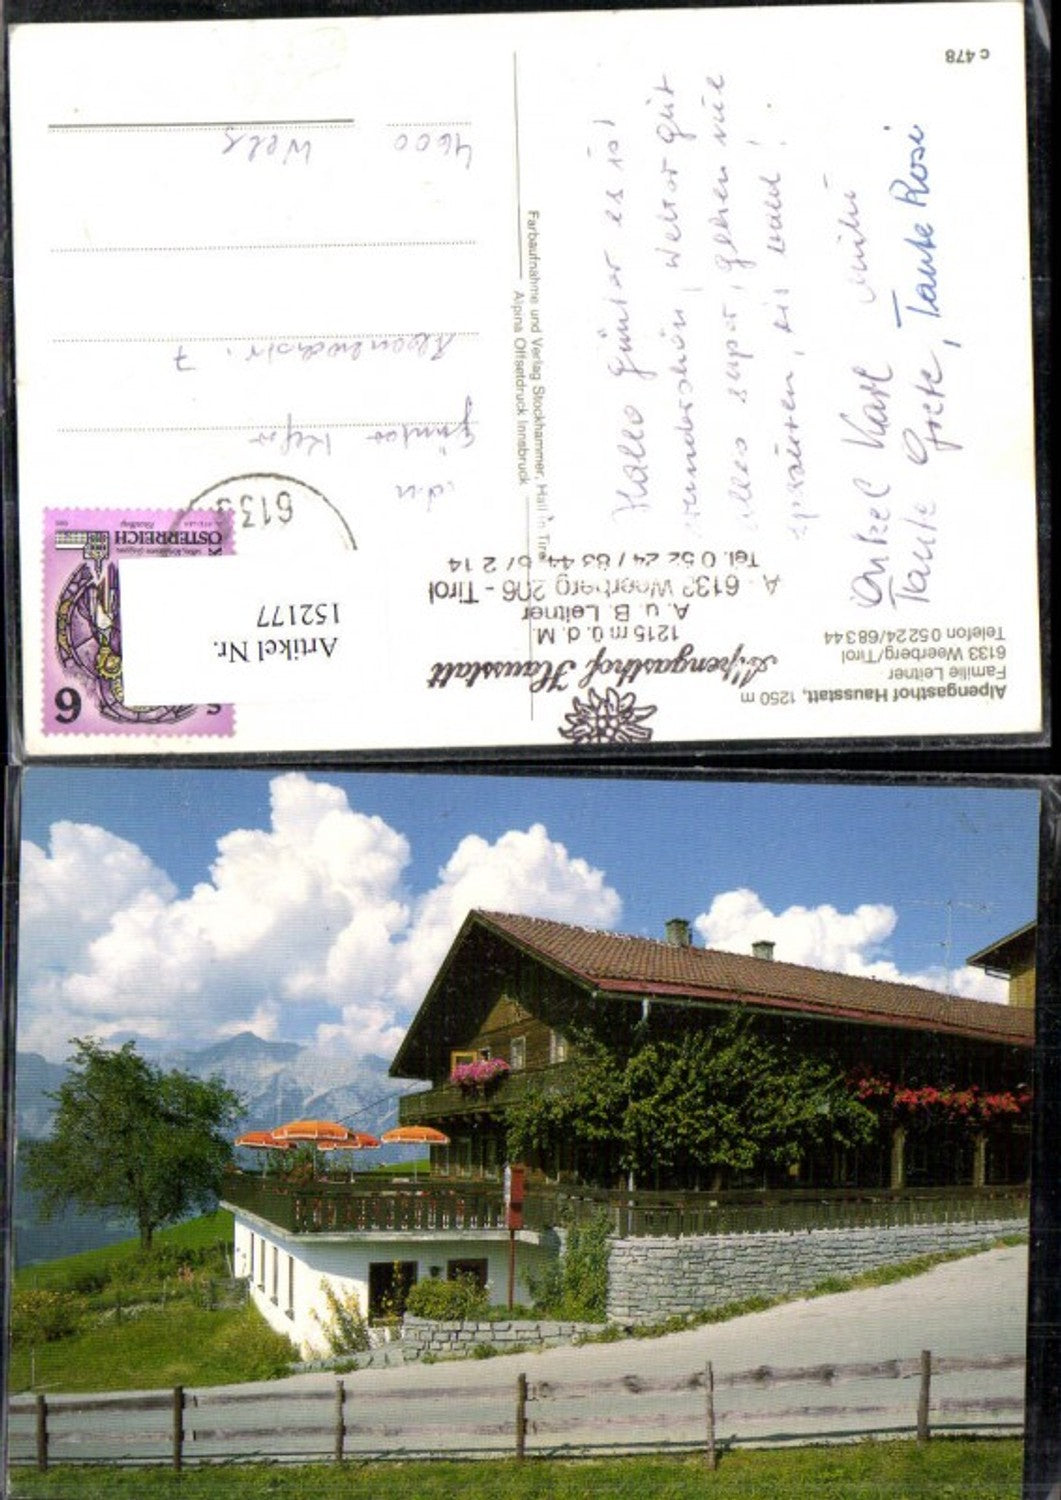 Alpengasthof Hausstatt, 1250 m
Familie Leitner
6133 Weerberg/Tirol
Telefon 05224/68344
Alpengasthof Hausstatt
1215 m ü. d. M.
A. u. B. Leitner
A - 6133 Weerberg 206 - Tirol
Tel. 0 52 24 / 83 44, 67 2 14
Hallo Günter es ist
wunderschön, Wetter gut
alles super, gehen viel
spazieren, bis bald!
Onkel Karl
Tante Grete, Tante Rosi
c 478
Farbaufnahme und Verlag Stockhammer, Hall in Tirol
Alpina Offsetdruck Innsbruck
6133
ÖSTERREICH
6
S
Artikel Nr.
152177
Günter
7
4600 Wels